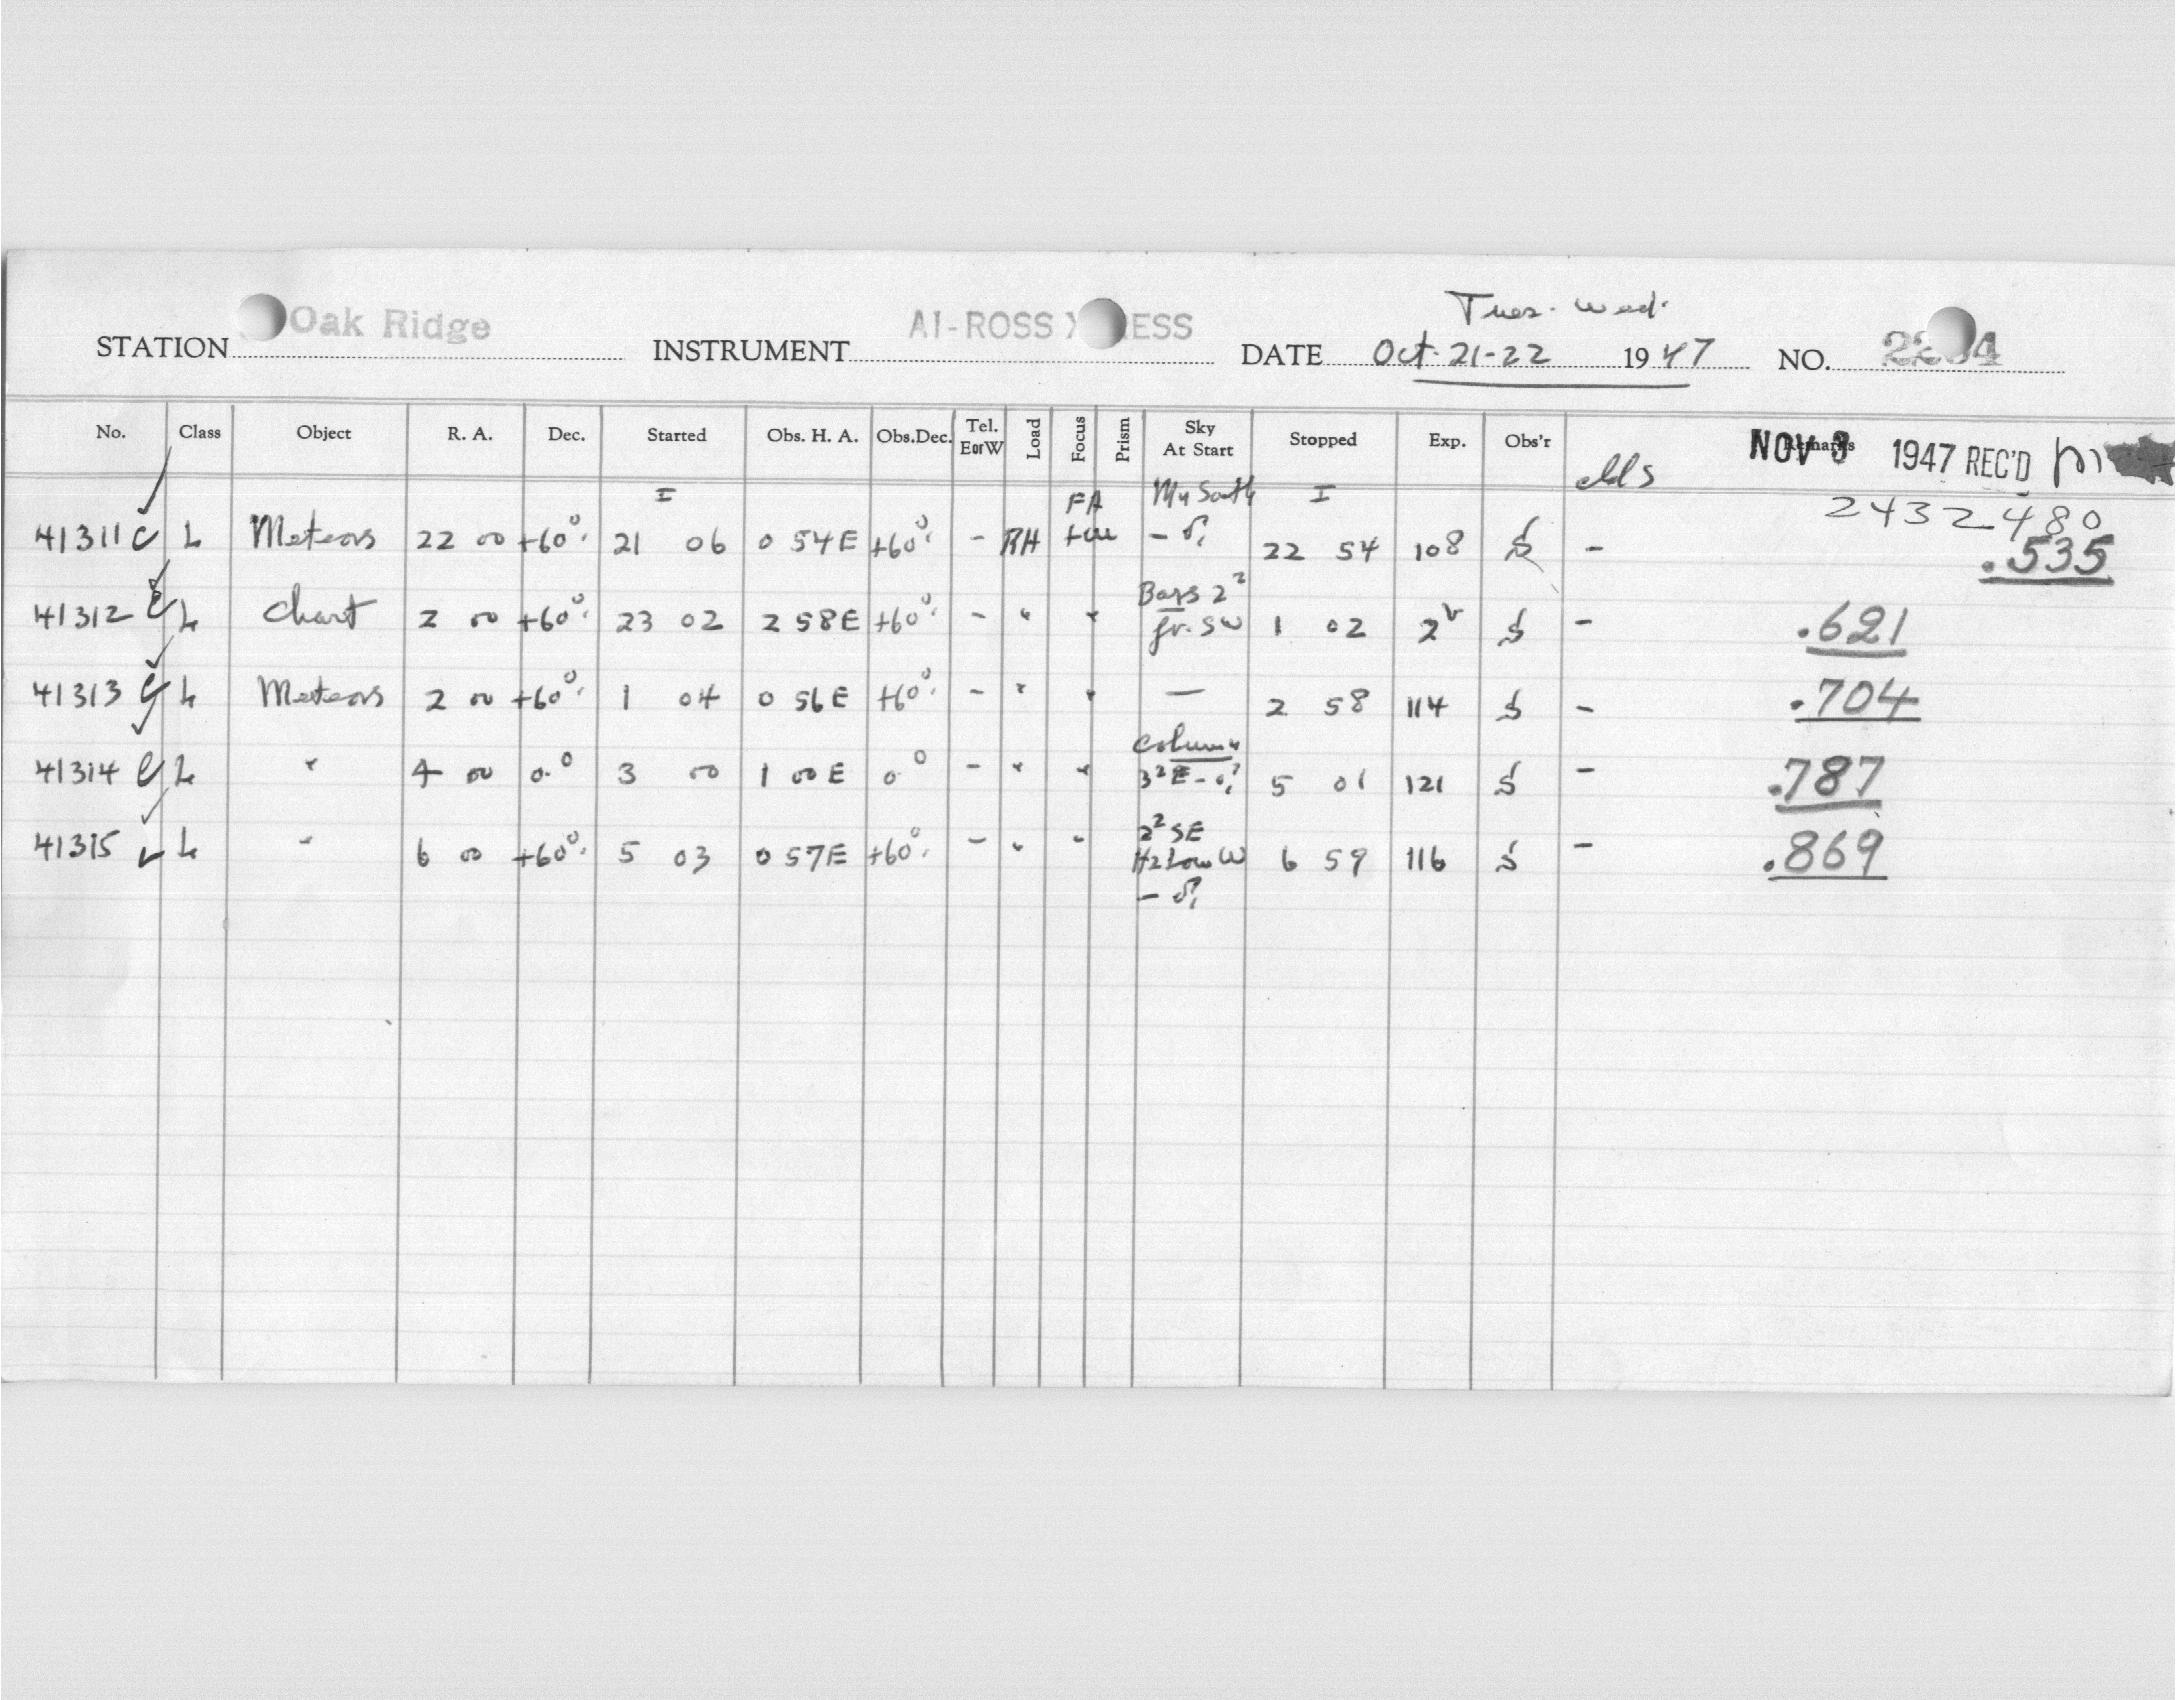 Tues. Wed.
STATION Oak Ridge INSTRUMENT AI-ROSS X ESS DATE Oct. 21-22 1947 NO. 22 4
No. Class Object R. A. Dec. Started Obs. H. A. Obs.Dec. Tel. EorW Load Focus Prism Sky At Start Stopped Exp. Obs'r Remarks NOV 3 1947 REC'D
2432480
41311 C L Meteors 22 00 +60°. 21 06 0 54E +60°. - RH FA - 22 54 108 S - .535
41312 C L Chart 2 00 +60°. 23 02 2 58E +60°. - " " Bars 2² fr. SW 1 02 2 S - .621
41313 C L Meteors 2 00 +60°. 1 04 0 56E +60°. - " " — 2 58 114 S - .704
41314 C L " 4 00 0.° 3 00 1 00E 0.° - " " Column 3²E - 5 01 121 S - .787
41315 L " 6 00 +60°. 5 03 0 57E +60°. - " " 2² SE Hz Low W - 6 59 116 S - .869